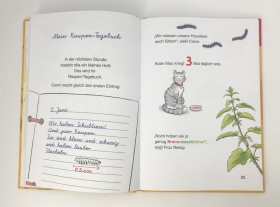 Mein Raupen-Tagebuch
In der nächsten Stunde
bastelt Alle ein kleines Heft.
Das wird ihr
Raupen-Tagebuch.
Conni macht gleich den ersten Eintrag.
3. Juni
Wir haben Schulkinder!
Und zwar Raupen.
Sie sind klein und schwarz
und haben lauter
Stacheln.
0,5 cm
„Wir müssen unsere Haustiere
auch füttern“, weiß Conni.
Kater Mau kriegt 3 Mal täglich was.
„Noch haben sie ja
genug Brennnesselblätter“,
sagt Frau Reisig.